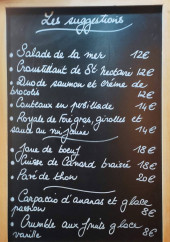 Les suggestions
• Salade de la mer 12€
• Croustillant de St nectaire 12€
• Duo de saumon et crème de
brocolis 12€
• Couteaux en persillade 14€
• Royale de foie gras, girolles et
14€
• Joue de boeuf 18€
• Cuisse de canard braisée 18€
• Pavé de thon 20€
• Carpaccio d'ananas et glace
passion 8€
• Crumble aux fruits glace
vanille 8€